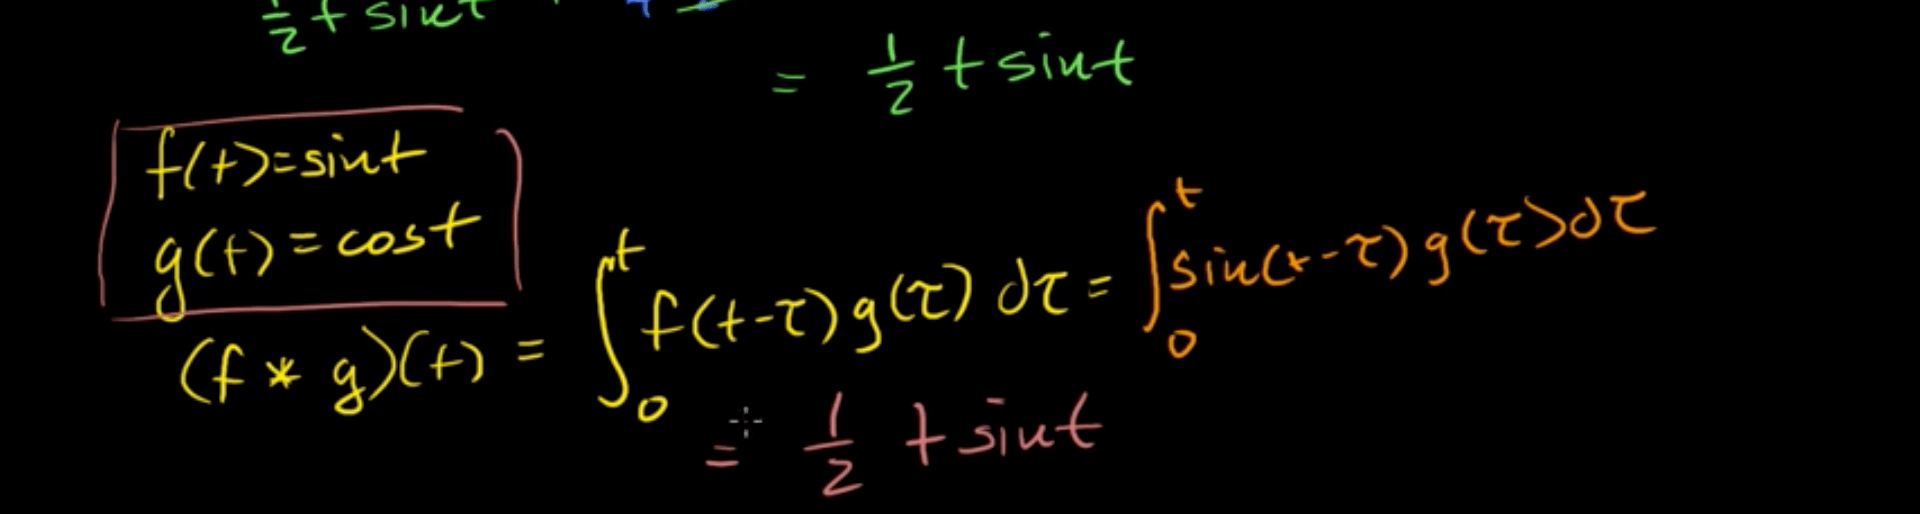 ½ t sint
= ½ t sint
f(t)=sint
g(t)=cost
(f * g)(t) = ∫₀ᵗ f(t-τ) g(τ) dτ = ∫₀ᵗ sin(t-τ) g(τ) dτ
= ½ t sint